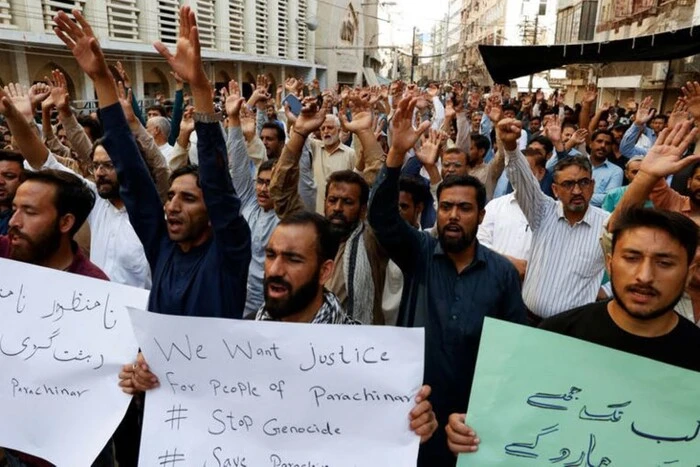 نامنظور نامن
دہشت گردی
Parachinar
We Want Justice
For People of Parachinar
# Stop Genocide
# Save Parachin
کب تک جمے